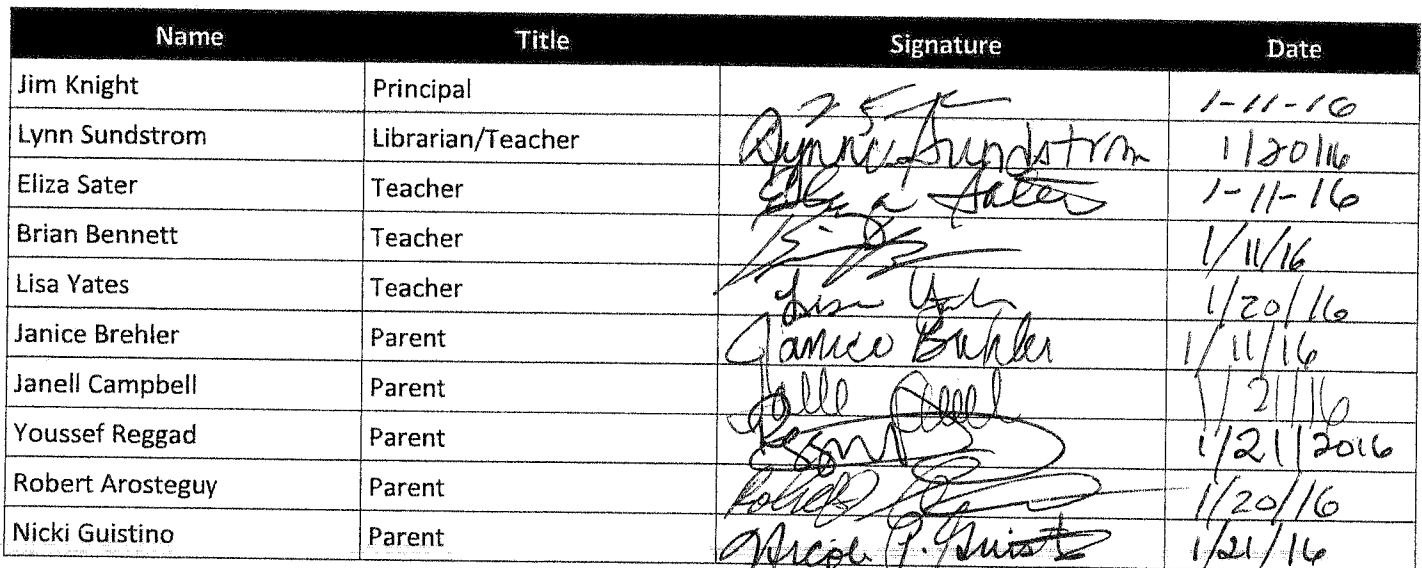 Name Title Signature Date
Jim Knight Principal 1-11-16
Lynn Sundstrom Librarian/Teacher Lynne Sundstrom 1/20/16
Eliza Sater Teacher Eliza Sater 1-11-16
Brian Bennett Teacher 1/11/16
Lisa Yates Teacher Lisa 1/20/16
Janice Brehler Parent Janice Brehler 1/11/16
Janell Campbell Parent 1/21/16
Youssef Reggad Parent 1/21/2016
Robert Arosteguy Parent Robert 1/20/16
Nicki Guistino Parent Nicole P. 1/21/16